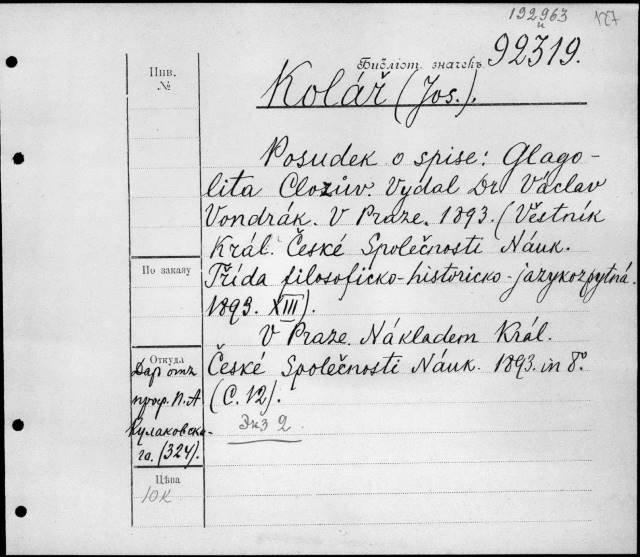 192963
и
127
Библіот. значекъ
92319.
Инв.
№
Kolář (Jos.).
Posudek o spise: Glago-
lita Clozův. Vydal Dr Václav
Vondrák. V Praze. 1893. (Věstník
Král. České Společnosti Náuk.
Třída filosoficko-historicko-jazykozpytná.
1893. XIII).
V Praze. Nákladem Král.
České Společnosti Náuk. 1893. in 8°
(С. 12).
Экз 2
По заказу
Откуда
Даръ отъ
проф. П. А
Кулаковска-
го. (324).
Цѣна
10к